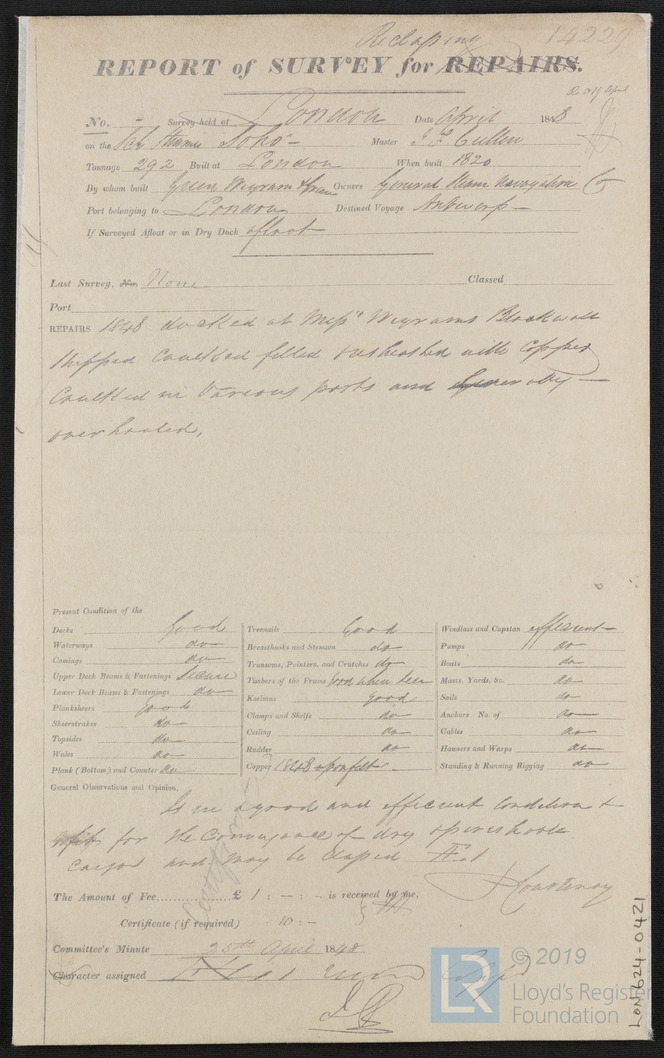 Reclassing 14229
REPORT of SURVEY for REPAIRS.
Rec 19 April
No. Survey held at London Date April 1848
on the Sch Steamer Soho Master J F Cullen
Tonnage 292 Built at London When built 1820
By whom built Green Wigrams & Green Owners General Steam Navigation Co
Port belonging to London Destined Voyage Antwerp
If Surveyed Afloat or in Dry Dock afloat
Last Survey, No. None Classed
Port
REPAIRS 1848 docked at Messrs Wigrams Blackwall
stripped caulked felted resheathed with copper
Caulked in various parts and generally
overhauled,
Present Condition of the
Decks Good
Waterways do
Comings do
Upper Deck Beams & Fastenings Secure
Lower Deck Beams & Fastenings do
Planksheers good
Sheerstrakes do
Topsides do
Wales do
Plank (Bottom) and Counter do
Treenails Good
Breasthooks and Stemson do
Transoms, Pointers, and Crutches do
Timbers of the Frame good when seen
Keelsons good
Clamps and Shelfs do
Ceiling do
Rudder do
Copper 1848 upon felt
Windlass and Capstan efficient
Pumps do
Boats do
Masts, Yards, &c. do
Sails do
Anchors No. of do
Cables do
Hawsers and Warps do
Standing & Running Rigging do
General Observations and Opinion,
Is in a good and efficient condition &
fit for the Conveyance of dry & perishable
cargos and may be classed Æ 1
J Courtenay
The Amount of Fee £ 1 : - : - is received by me,
Certificate (if required) : 10 : -
Committee's Minute 25th April 1848
Character assigned Æ 1
© 2019
LR
Lloyd's Register
Foundation
LON624-0421